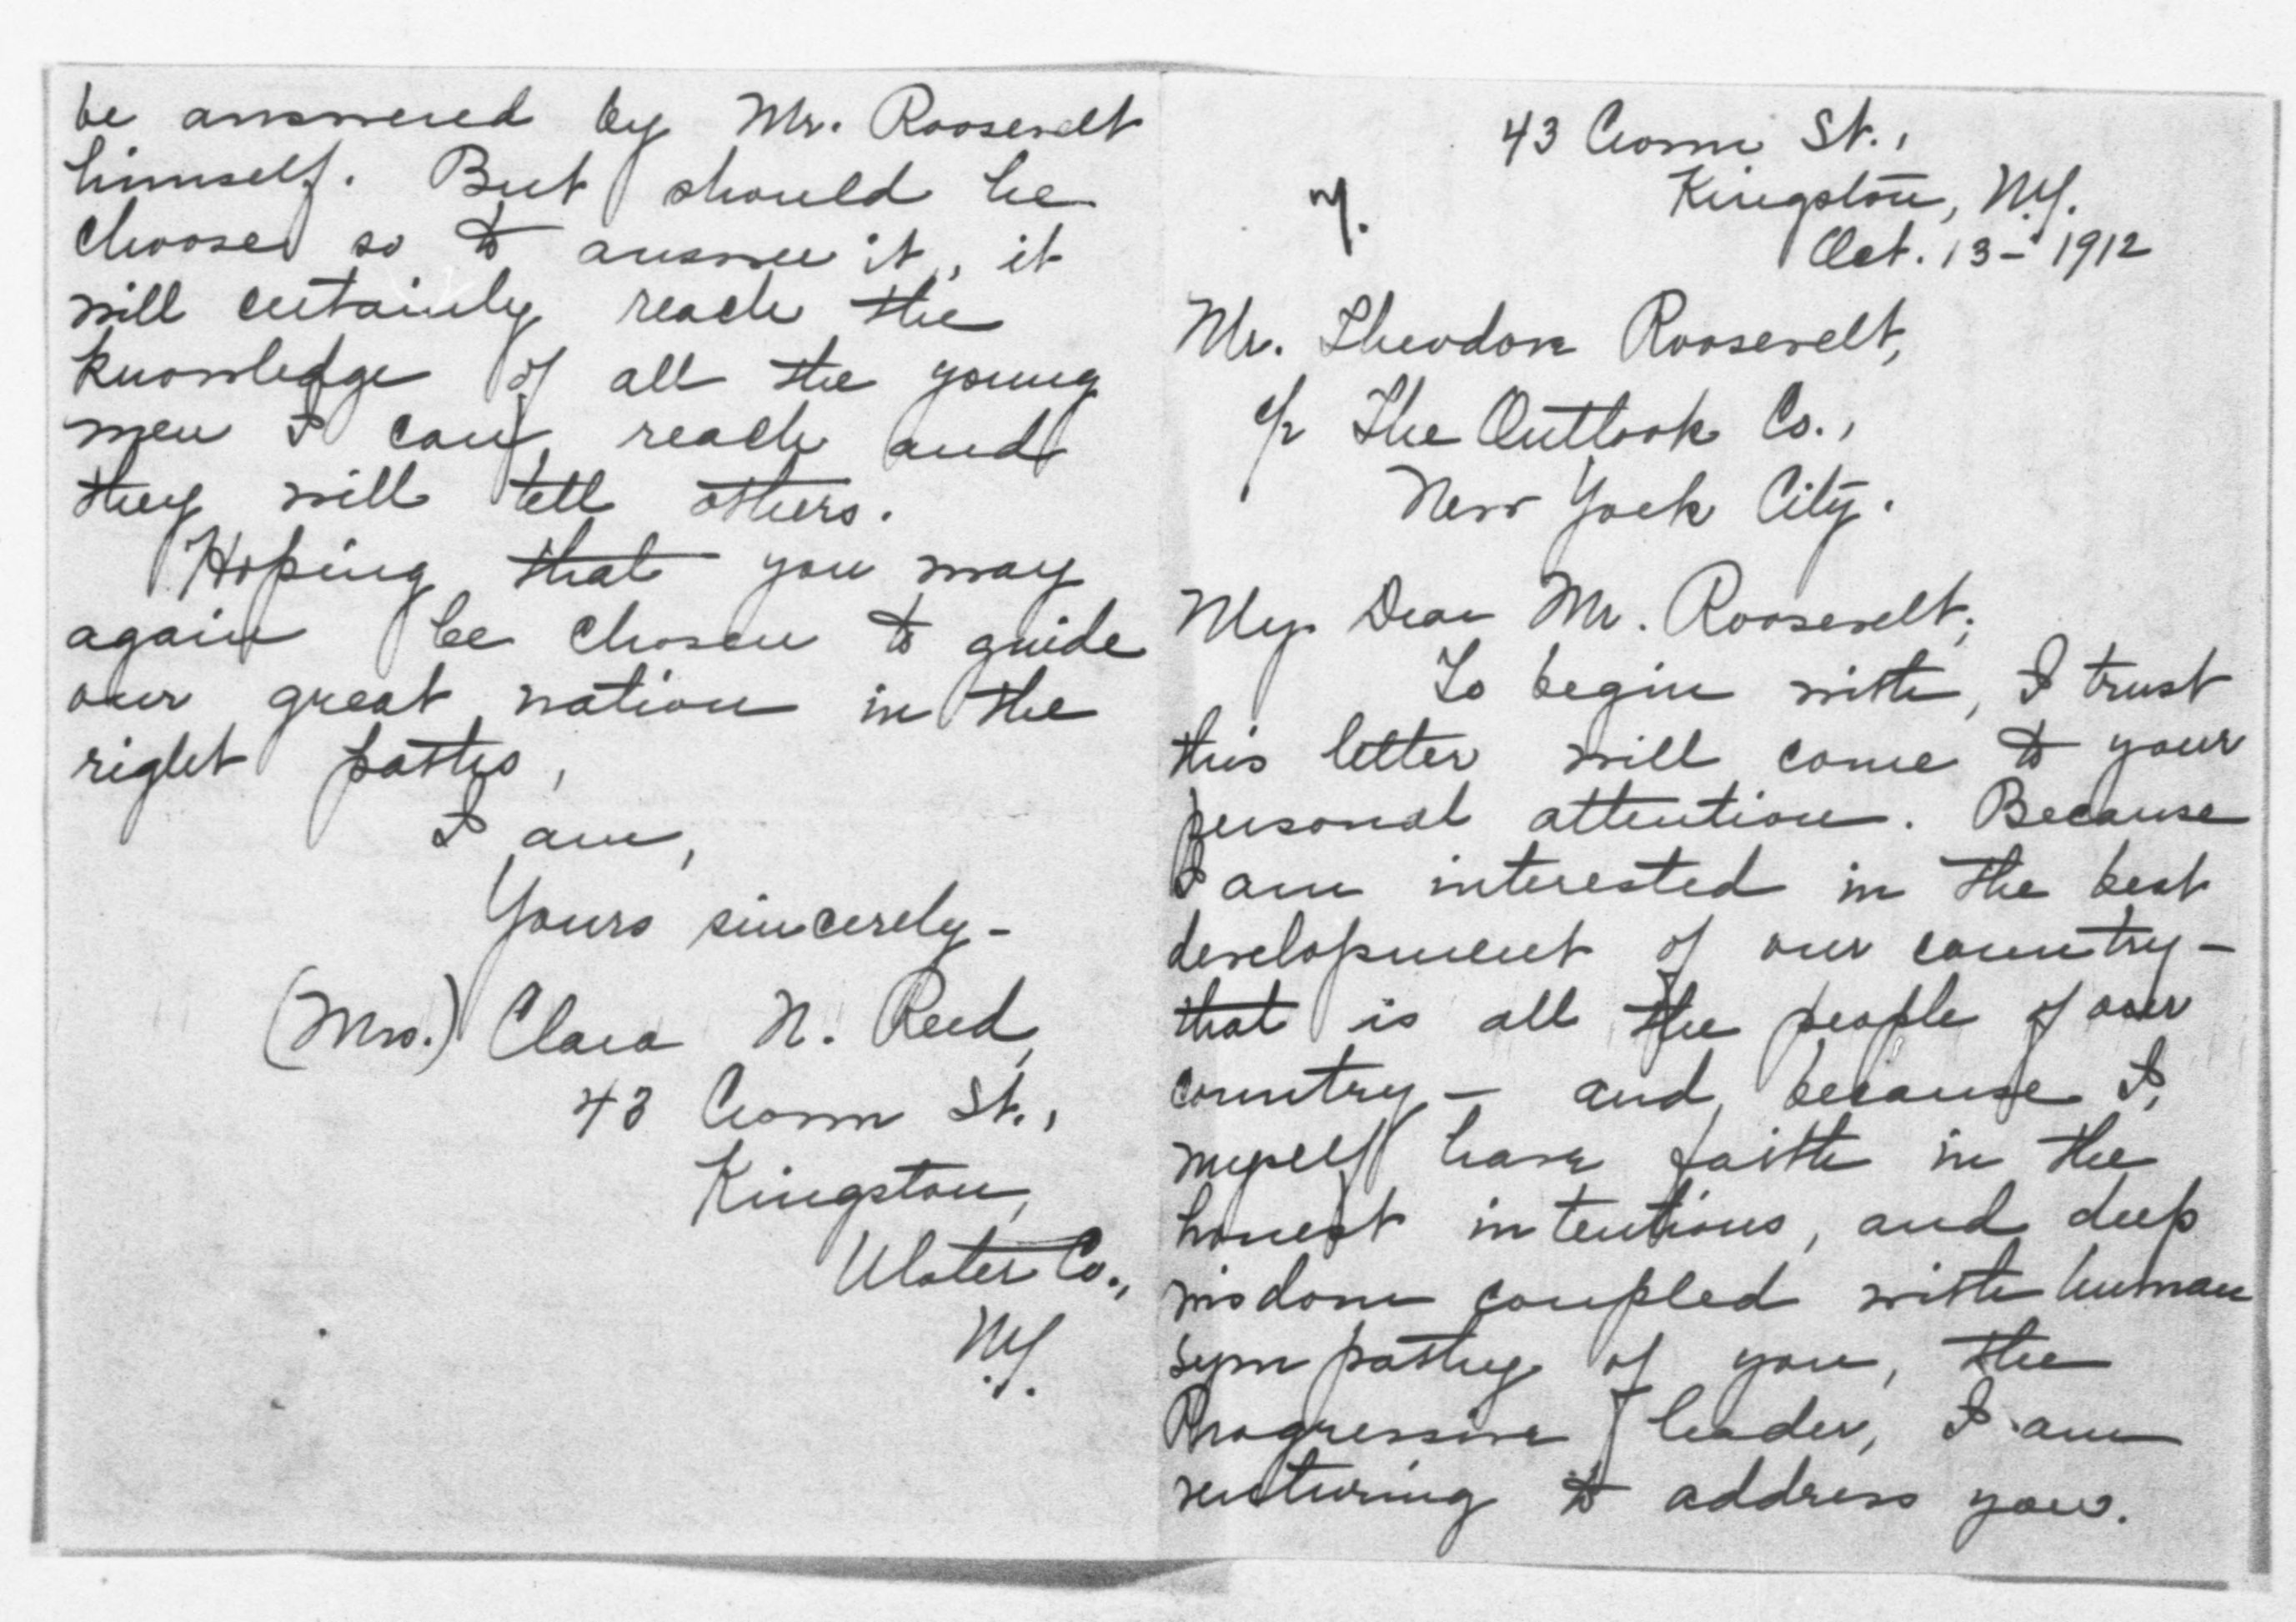 be answered by Mr. Roosevelt
himself. But should he
choose so to answer it, it
will certainly reach the
knowledge of all the young
men I can reach and
they will tell others.
Hoping that you may
again be chosen to guide
our great nation in the
right paths,
I am,
Yours sincerely-
(Mrs.) Clara N. Reed,
43 Crown St.,
Kingston,
Ulster Co.,
N.Y.
43 Crown St.,
Kingston, N.Y.
Oct. 13- 1912
Mr. Theodore Roosevelt,
c/o The Outlook Co.,
New York City.
My Dear Mr. Roosevelt;
To begin with, I trust
this letter will come to your
personal attention. Because
I am interested in the best
development of our country-
that is all the people of our
country - and because I,
myself have faith in the
honest intentions, and deep
wisdom coupled with human
sympathy of you, the
Progressive leader, I am
venturing to address you.